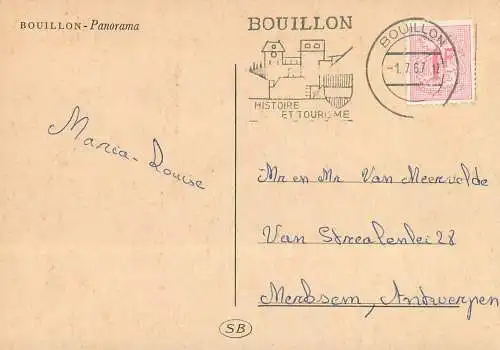 BOUILLON - Panorama
BOUILLON
HISTOIRE
ET TOURISME
BOUILLON
-1.7.67 12
Maria-Louise
Mr en Mr Van Meervelde
Van Stralenlei 28
Merksem, Antwerpen
SB